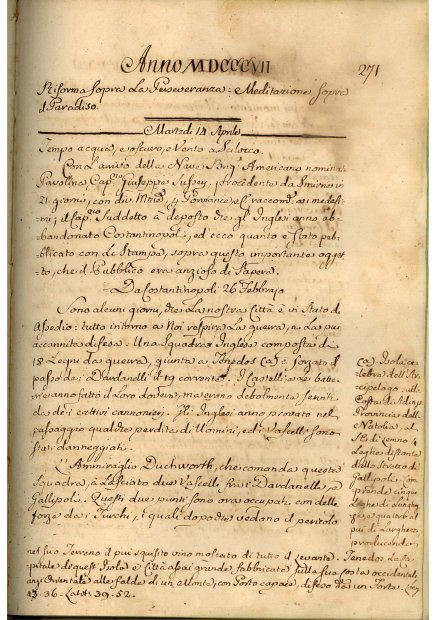 Anno MDCCCVII
271
Riforma sopra La Perseveranza: Meditazione sopra
il Paradiso.
Martedì 14 Aprile
Tempo acqua, e oscuro, Vento a Scilocco.
Con L'arrivo della Nave Americano nominat
Paolina, Cap.no Giuseppe procedente da Smirne in
21 giorni, con di
mi; il Cap.no Suddetto à deposto che gl'Inglesi anno ab-
bandonato Costantinopoli, ed ecco quanto è Stato pub-
blicato con Le Stampe, sopra questo importante ogget-
to, che il Pubblico era anzioso di Sapere.
Da Costantinopoli 26 Febbrajo
Sono alcuni giorni, che La nostra Città è in Stato di
Assedio: tutto intorno a Noi respira La guerra, e La più
decannita difesa. Una Squadra Inglese composta di
18 Legni da guerra, giunta a Tenedos (a) è forzato il
passo de i Dardanelli il 19 corrente. I Castelli
anno fatto il Loro dovere, ma erono debolmente serviti
da de i cattivi cannonieri. Gl'Inglesi anno provato nel
passaggio qualche perdita di Uomini, ed i Vascelli sono
stati danneggiati.
L'Ammiraglio Duchworth, che comanda questa
Squadra, à Lasciato due Vascelli fra i Dardanelli, e
Gallipoli. Questi due punti sono ora occupati con delle
forze da i Turchi, i quali dopo che vedono il pericolo
(a) Isola ce-
lebre dell'Ar-
cipelago, sulla
Costa di
Provincia della
Natolia, al
Leghe distante
dallo Stretto di
Gallipoli. Com
prende cinque
Leghe di
al
più di Larghezza
producendo
nel suo Terreno il più squisito vino moscato di tutto il Levante. Tenedos La Ca-
pitale di quest'Isola è Città assai grande fabbricata sulla sua costa occidentale,
anzi Orientale alle falde di un Monte, con Porto capace, difeso da un Forte. Long.
43. 36. Lat. 39. 52.